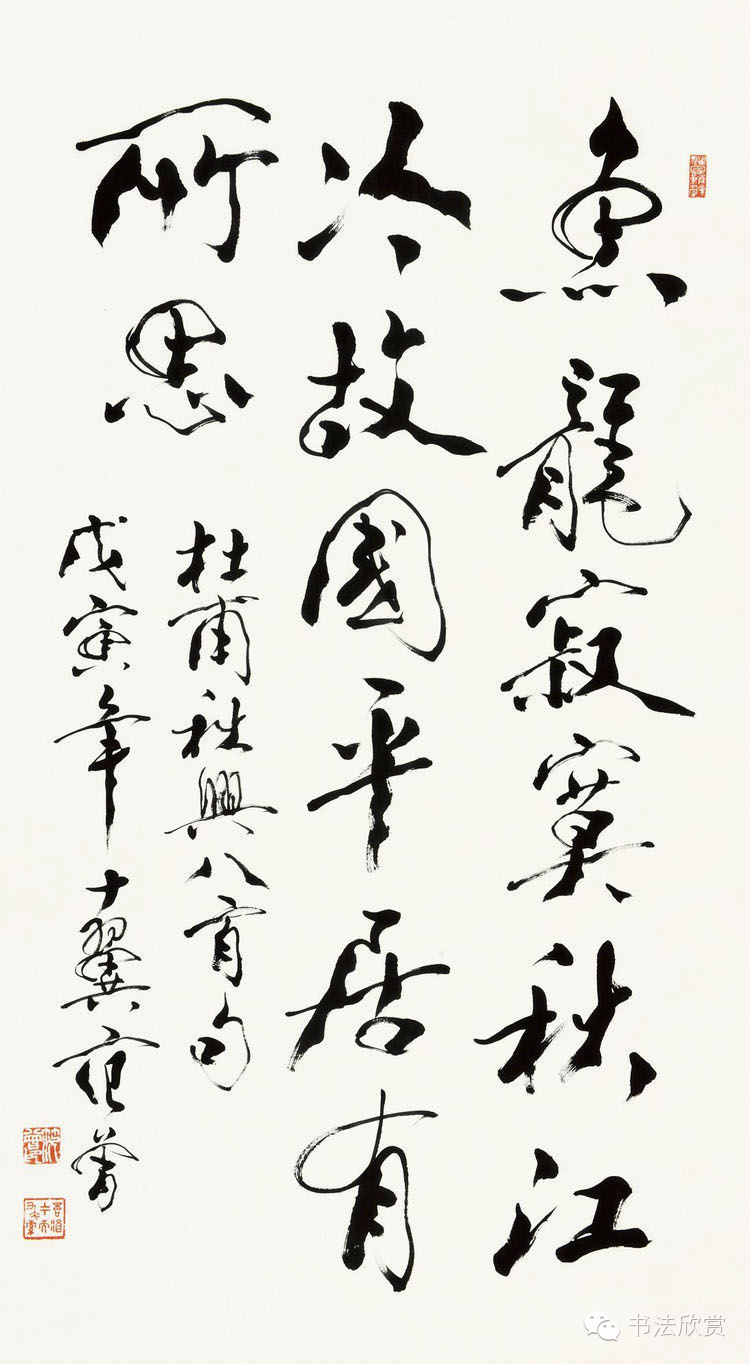 魚龍寂寞秋江
冷故國平居有
所思
杜甫秋興八首句
戊寅年十翼范曾
书法欣赏